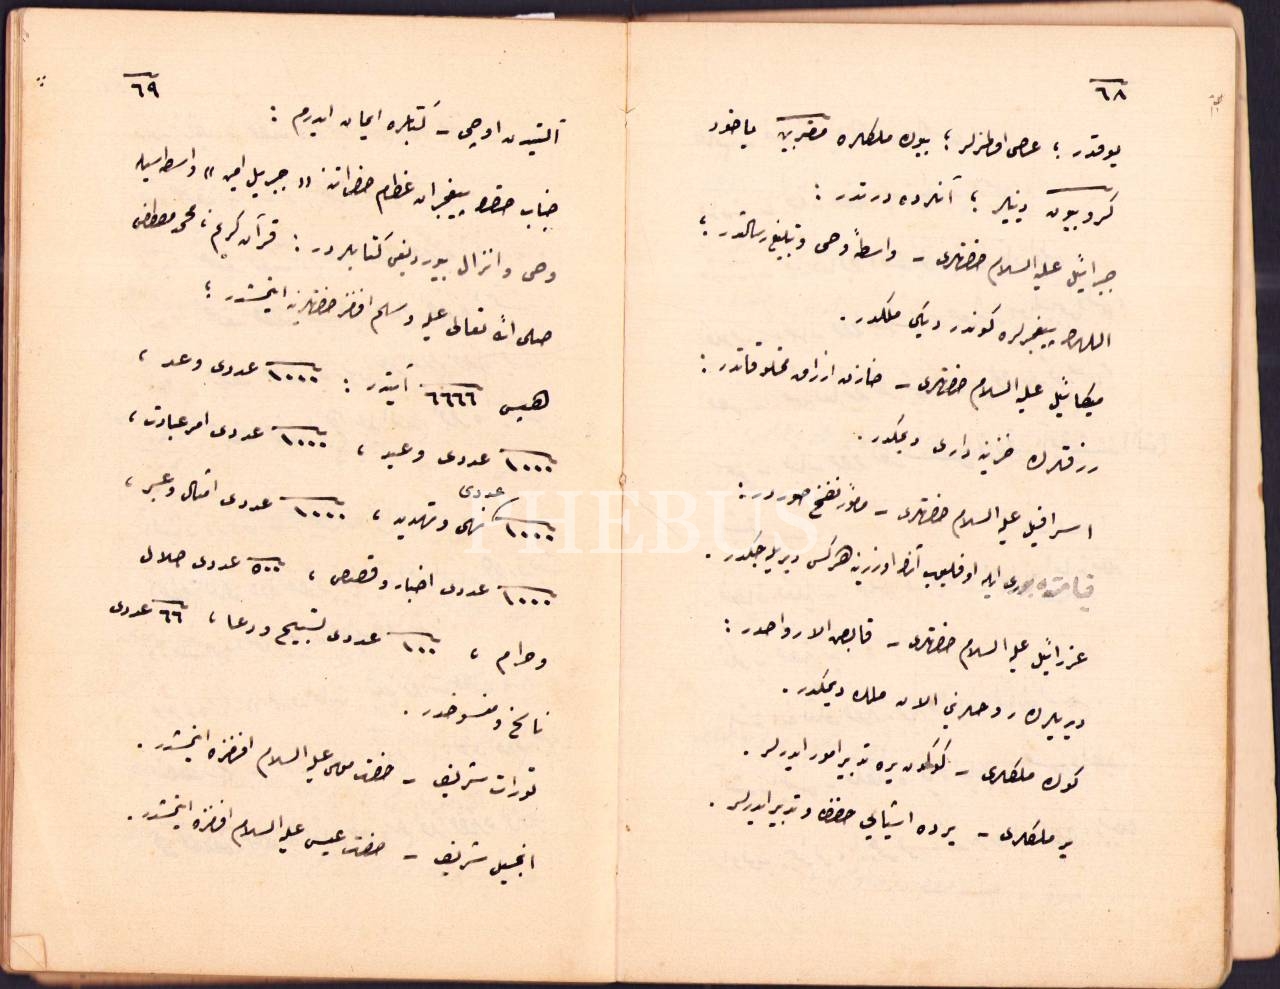 ٦٨
يوقدر ؛ عاصى اولمازلر ؛ بيوك ملكلره مقربين ياخود
كروبيون دينير ؛ آنلرده درتدر :
جبرائيل عليه السلام حضرتلرى – واسطهٔ وحى و تبليغ رسالتدر ؛
اللهك پيغمبرلره كوندرديكى ملكدر .
ميكائيل عليه السلام حضرتلرى – خازن ارزاق مخلوقاتدر :
رزقلرك خزينه دارى ديمكدر .
اسرافيل عليه السلام حضرتلرى – مأمور نفخ صوردر :
قيامتده بورى ايله اوفليوب آنك اوزرينه هركس ديريله جكدر .
عزرائيل عليه السلام حضرتلرى – قابض الارواحدر :
ديريلرك روحلرينى الان ملك ديمكدر .
كوك ملكلرى – كوكدن يره تدبير امور ايدرلر .
ير ملكلرى – يرده اشيايى حفظ و تدبير ايدرلر .
٦٩
آلتيدن اوچى – كتابلره ايمان ايدرم :
جناب حقك پيغمبران عظام حضراتنه « جبريل امين » واسطه سيله
وحى و انزال بيورديغى كتابلردر : قرآن كريم ، محمد مصطفى
صلى الله تعالى عليه و سلم افندمز حضرتلرينه اينمشدر ؛
هپسى ٦٦٦٦ آيتدر : ١٠٠٠ عددى وعد ،
١٠٠٠ عددى وعيد ، ١٠٠٠ عددى امر عبادت ،
١٠٠٠ عددى نهى و تهديد ، ١٠٠٠ عددى امثال و عبر ،
١٠٠٠ عددى اخبار و قصص ، ٥٠٠ عددى حلال
و حرام ، ١٠٠ عددى تسبيح و دعا ، ٦٦ عددى
ناسخ و منسوخدر .
تورات شريف – حضرت موسى عليه السلام افندمزه اينمشدر .
انجيل شريف – حضرت عيسى عليه السلام افندمزه اينمشدر .
PHEBUS